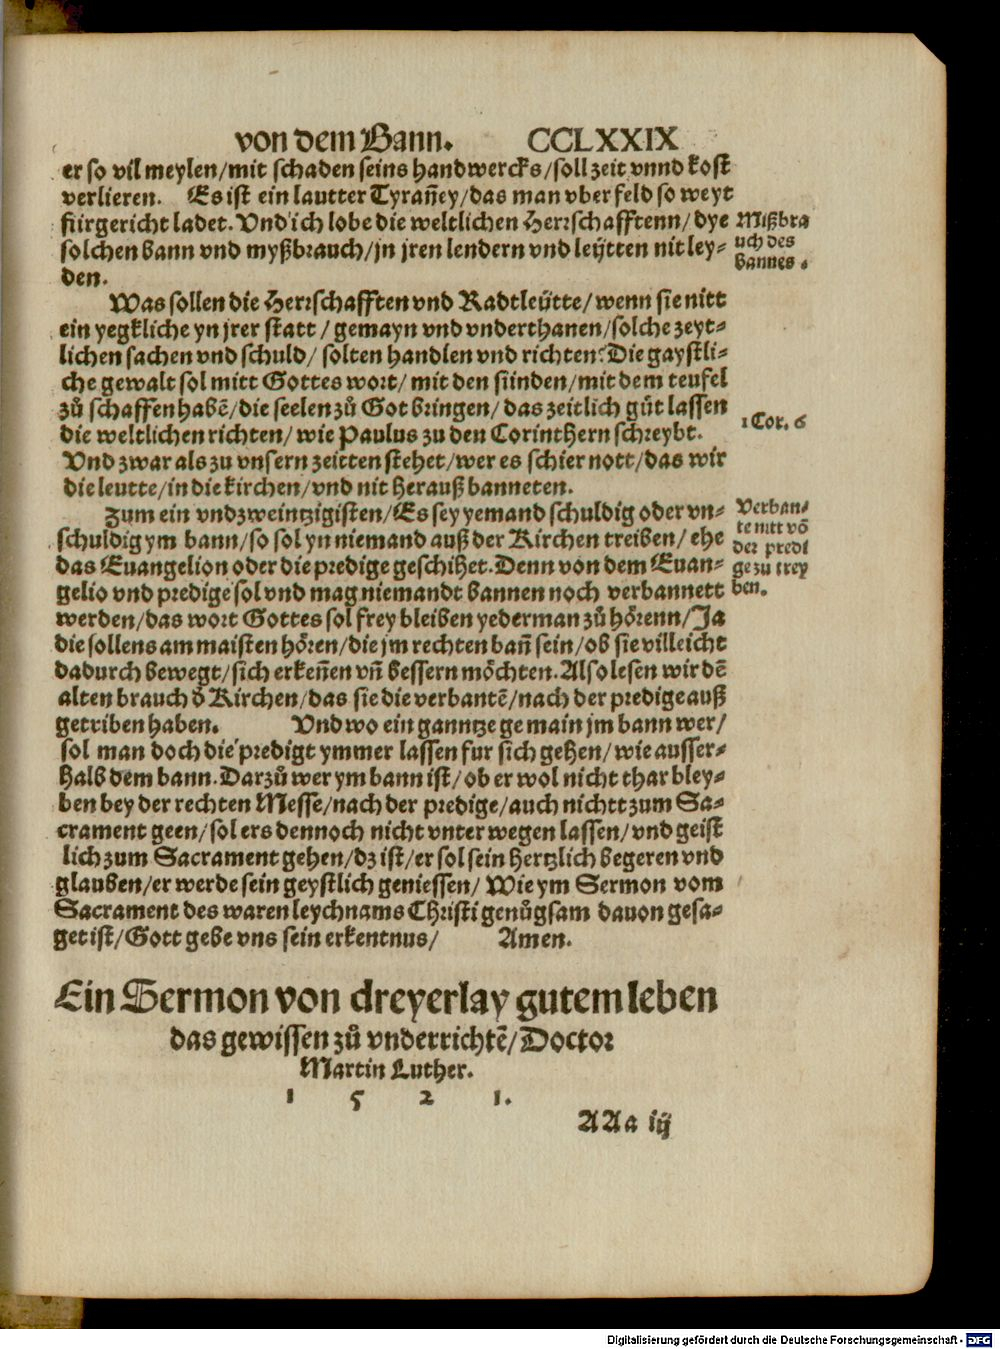 von dem Bann. CCLXXIX
er so vil meylen/mit schaden seins handwercks/soll zeit vnnd kost
verlieren. Es ist ein lautter Tyrañey/das man vber feld so weyt
fürgericht ladet. Vnd ich lobe die weltlichen Herrschafftenn/dye
solchen bann vnd myßbrauch/jn jren lendern vnd leÿtten nit ley-
den.
Mißbra
uch des
bannes.
Was sollen die Herrschafften vnd Radtleütte/wenn sie nitt
ein yegkliche yn jrer statt/gemayn vnd vnderthanen/solche zeyt-
lichen sachen vnd schuld/solten handlen vnd richten? Die gaystli-
che gewalt sol mitt Gottes wort/mit den sünden/mit dem teufel
zů schaffen habē/die seelen zů Got bringen/das zeitlich gůt lassen
die weltlichen richten/wie Paulus zu den Corinthern schreybt.
1 Cor. 6
Vnd zwar als zu vnsern zeitten stehet/wer es schier nott/das wir
die leutte/in die kirchen/vnd nit herauß banneten.
Zum ein vnd zweintzigisten/Es sey yemand schuldig oder vn-
schuldig ym bann/so sol yn niemand auß der Kirchen treiben/ehe
das Euangelion oder die predige geschihet. Denn von dem Euan-
gelio vnd predige sol vnd mag niemandt bannen noch verbannett
werden/das wort Gottes sol frey bleiben yederman zů hörenn/Ja
die sollens am maisten hören/die jm rechten bañ sein/ob sie villeicht
dadurch bewegt/sich erkeñen vñ bessern möchten. Also lesen wir dē
alten brauch d̊ Kirchen/das sie die verbantē/nach der predige auß
getriben haben. Vnd wo ein ganntze gemain jm bann wer/
sol man doch die predigt ymmer lassen fur sich gehen/wie ausser-
halb dem bann. Darzů wer ym bann ist/ob er wol nicht thar bley-
ben bey der rechten Messe/nach der predige/auch nichtt zum Sa-
crament geen/sol ers dennoch nicht vnterwegen lassen/vnd geist
lich zum Sacrament gehen/dz ist/er sol sein hertzlich begeren vnd
glauben/er werde sein geystlich geniessen/Wie ym Sermon vom
Sacrament des waren leychnams Christi genůgsam dauon gesa-
get ist/Gott gebe vns sein erkentnus/ Amen.
Verban-
te nitt vō
der predi
ge zu trey
ben.
Ein Sermon von dreyerlay gutem leben
das gewissen zů vnderrichtē/Doctor
Martin Luther.
1 5 2 1.
AAa iij
Digitalisierung gefördert durch die Deutsche Forschungsgemeinschaft - DFG